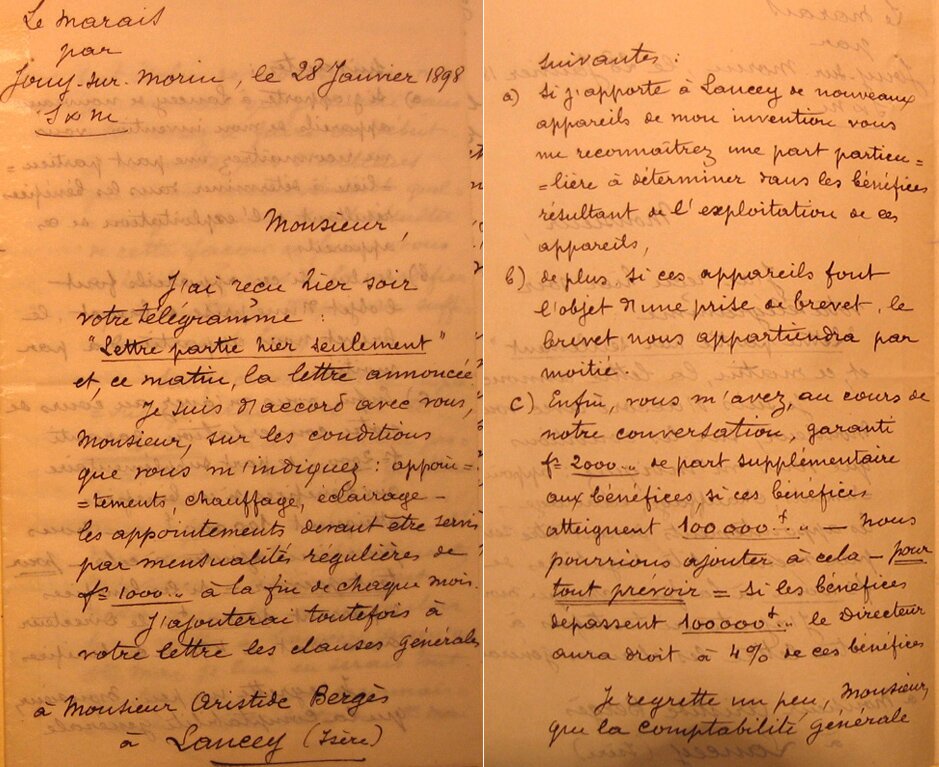 Le Marais
par
Jouy-sur-Morin, le 28 Janvier 1898
S & M
Monsieur,
J'ai reçu hier soir
votre télégramme :
"Lettre partie hier seulement"
et, ce matin, la lettre annoncée
Je suis d'accord avec vous,
Monsieur, sur les conditions
que vous m'indiquez : appoin=
=tements, chauffage, éclairage -
les appointements devant être servis
par mensualités régulières de
fs 1000.. à la fin de chaque mois.
J'ajouterai toutefois à
votre lettre les clauses générales
à Monsieur Aristide Bergès
à Lancey (Isère)
suivantes :
a) Si j'apporte à Lancey de nouveaux
appareils de mon invention vous
me reconnaîtrez une part particu=
=lière à déterminer dans les bénéfices
résultant de l'exploitation de ces
appareils,
b) de plus, si ces appareils font
l'objet d'une prise de brevet, le
brevet nous appartiendra par
moitié.
c) Enfin, vous m'avez, au cours de
notre conversation, garanti
fs 2000.. de part supplémentaire
aux bénéfices, si ces bénéfices
atteignent 100000f.. — Nous
pourrions ajouter à cela - pour
tout prévoir = Si les bénéfices
dépassent 100000f.. le Directeur
aura droit à 4% de ces bénéfices
Je regrette un peu, Monsieur,
que la comptabilité générale